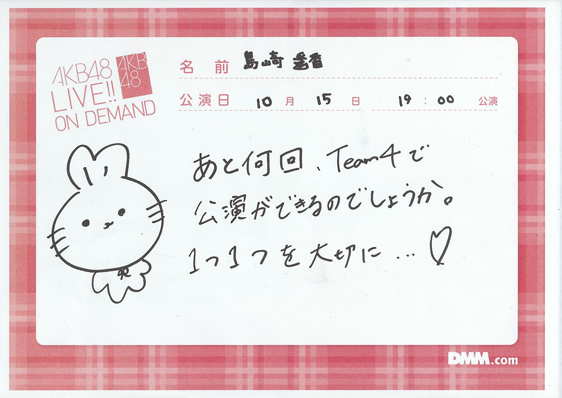 AKB48
LIVE!!
ON DEMAND
AKB
48
名前 島崎 遥香
公演日 10月 15日 19:00 公演
あと何回、Team4で
公演ができるのでしょうか。
1つ1つを大切に...♡
DMM.com